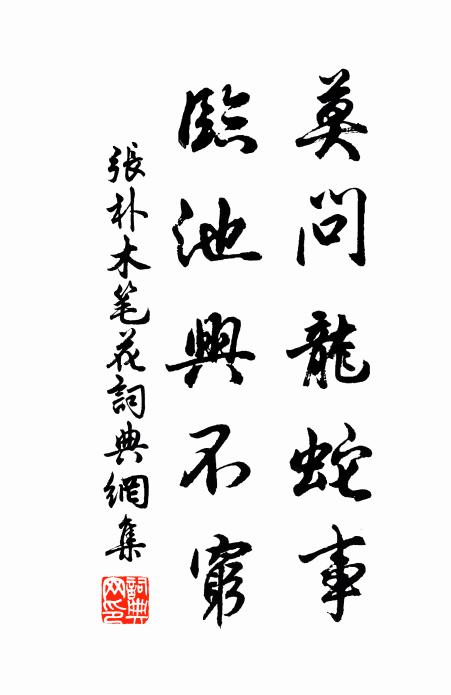 莫問龍蛇事
臨池興不窮
張朴木笔花詞典網集
詞典
网印